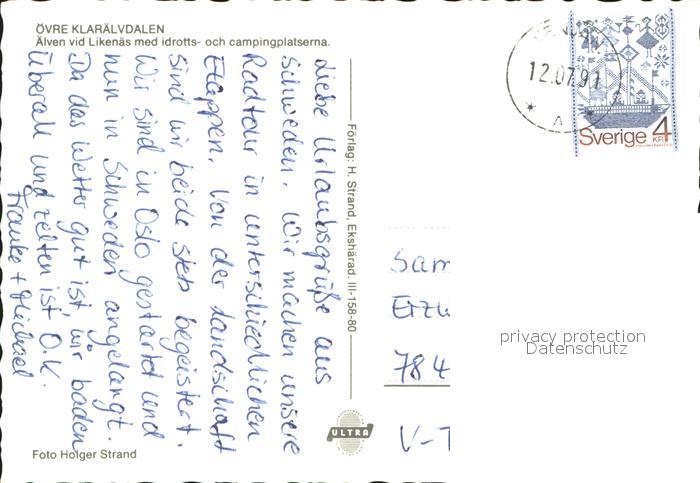 ÖVRE KLARÄLVDALEN
Älven vid Likenäs med idrotts- och campingplatserna.
Liebe Urlaubsgrüße aus
Schweden. Wir machen unsere
Radtour in unterschiedlichen
Etappen. Von der Landschaft
sind wir beide stets begeistert.
Wir sind in Oslo gestartet und
nun in Schweden angelangt.
Da das Wetter gut ist, wir baden
überall und zelten ist O.K.
Frauke + Michael
Foto Holger Strand
Förlag: H. Strand, Ekshärad. III-158-80
ULTRA
12.07.91
A
Sverige 4
KR
Sam
784
V-T
privacy protection
Datenschutz